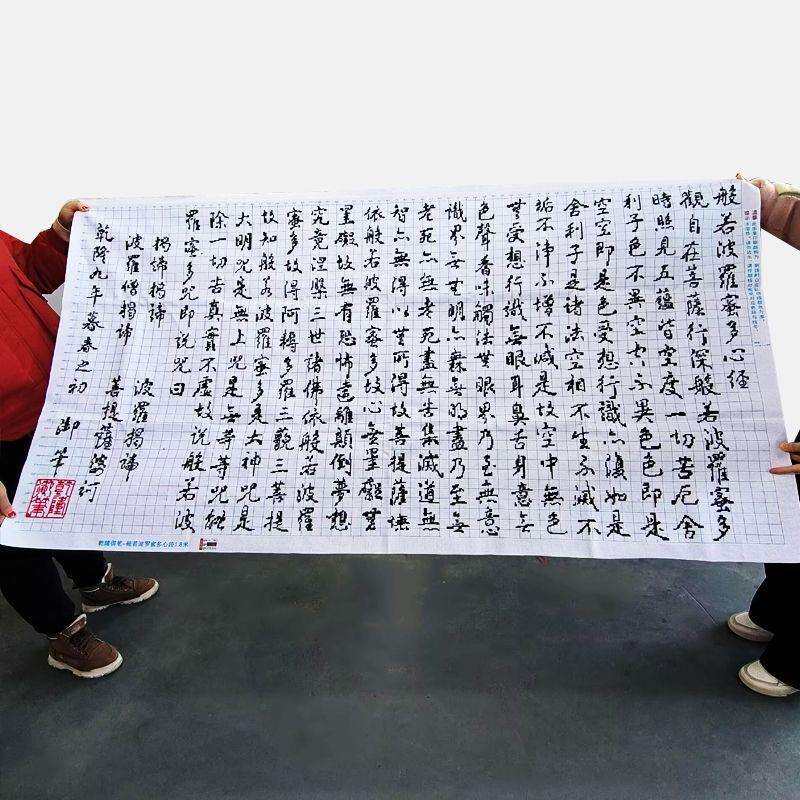 般若波羅蜜多心经
觀自在菩薩行深般若波羅蜜多
時照見五蘊皆空度一切苦厄舍
利子色不異空空不異色色即是
空空即是色受想行識亦復如是
舍利子是諸法空相不生不滅不
垢不淨不增不減是故空中無色
無受想行識無眼耳鼻舌身意無
色聲香味觸法無眼界乃至無意
識界無無明亦無無明盡乃至無
老死亦無老死盡無苦集滅道無
智亦無得以無所得故菩提薩埵
依般若波羅蜜多故心無罣礙無
罣礙故無有恐怖遠離顛倒夢想
究竟涅槃三世諸佛依般若波羅
蜜多故得阿耨多羅三藐三菩提
故知般若波羅蜜多是大神咒是
大明咒是無上咒是無等等咒能
除一切苦真實不虛故說般若波
羅蜜多咒即說咒曰
揭諦揭諦 波羅揭諦
波羅僧揭諦 菩提薩婆訶
乾隆九年暮春之初 御筆
乾隆御筆
乾隆御笔-般若波罗蜜多心经1.8米